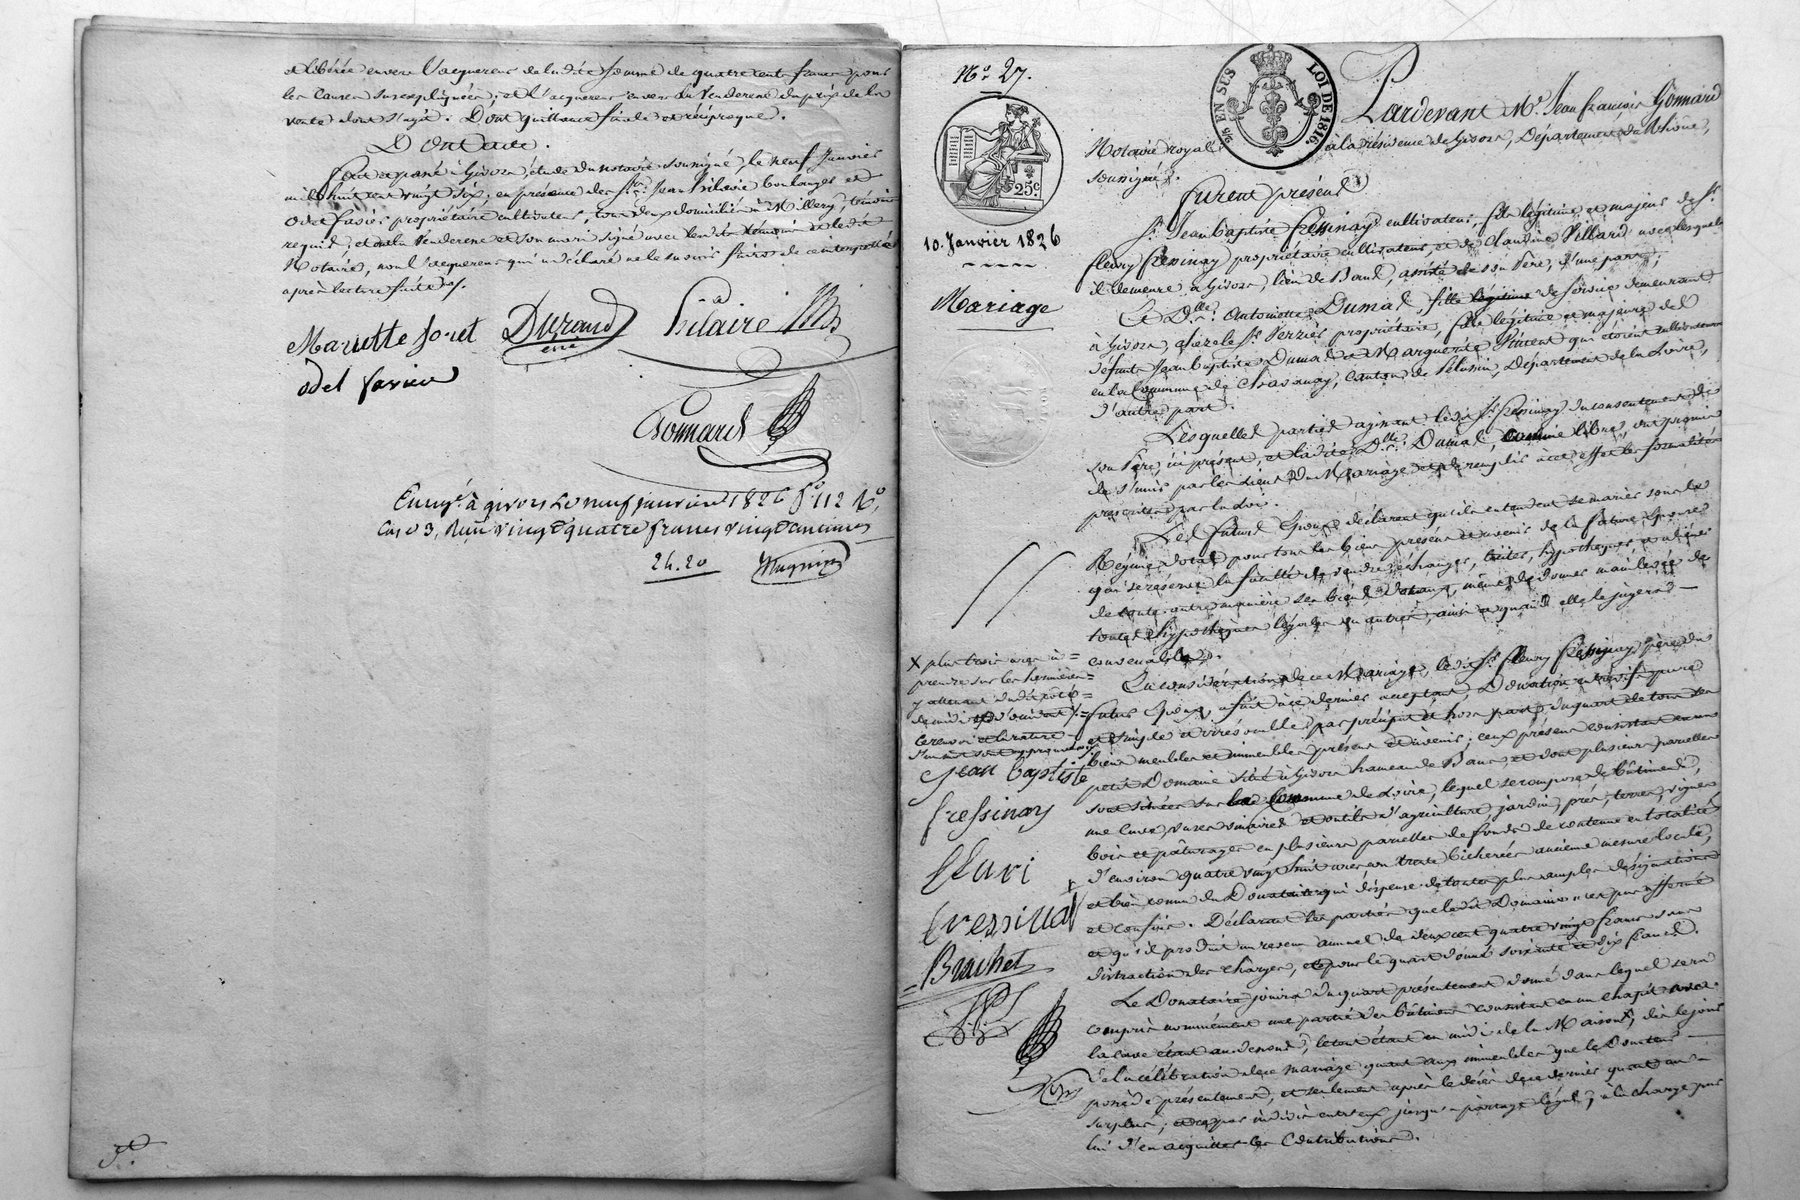 et libérée envers l'acquereur de la dite somme de quatre cents francs pour
les causes susexpliquées; et l'acquereur envers la Venderesse du prix de la
vente dont s'agit. Dont quittance finale et réciproque.
Dont acte.
Fait et passé à Givors, étude du notaire soussigné, le neuf Janvier
mil huit cent vingt six, en présence des Srs. Jean Hilaire boulanger et
Odet favier propriétaire cultivateur, tous deux domiciliés à Millery, témoins
requis, et ont la Venderesse et son mari signé avec les témoins et ledit
Notaire, non l'acquereur qui a déclaré ne le savoir faire de ce interpellé
après lecture faite.
Mariette Jonet Durand Hilaire
odet favier
Gonnard
Enregé. à givors le neuf janvier 1826 fo. 112 Ro.
Case 3, Reçu vingt quatre francs vingt centimes
24.20 Magnin
No. 27.
25c
10. Janvier 1826
Mariage
EN SUS LOI DE 1816
Pardevant Me. Jean françois Gonnard
Notaire royal à la résidence de Givors, Département du Rhône,
soussigné.
furent présens
Sr. Jean baptiste fressinay cultivateur, fils légitime et majeur de Sr.
fleury fressinay propriétaire cultivateur, et de Claudine Villard avec lesquels
il demeure à Givors, lieu de Bans, assisté de son Père, d'une part;
Et Dlle. Antoinette Dumas, fille légitime de service demeurant
à Givors, chez le Sr. Perrier propriétaire, fille légitime et majeure de
défunts Jean baptiste Dumas et Marguerite Vincent qui étoient cultivateurs
en la Commune de Chavanay, Canton de Pélussin, Département de la Loire,
d'autre part.
Lesquelles parties agissant ledit Sr. fressinay du consentement de
son Père, ici présent, et ladite Dlle. Dumas, comme libre, ont promis
de s'unir par les liens du Mariage et de remplir à cet effet les formalités
prescrites par la loi.
Les futurs époux déclarent qu'ils entendent se marier sous le
Régime dotal pour tous les biens présens et à venir de la future épouse
qui se réserve la faculté de vendre, échanger, traiter, hypothequer et aliéner
de toute autre manière ses biens dotaux, même de donner mainlevée de
toutes hypothèques légales ou autres, ainsi et quand elle le jugera
convenable.
En considération de ce Mariage, ledit Sr. fleury fressinay père du
futur époux, a fait à ce dernier acceptant, Donation entrevifs pure
et simple et irrévocable, par préciput et hors part, du quart de tous ses
biens meubles et immeubles présens et à venir; ceux présens consistant en un
petit Domaine situé à Givors hameau de Bans, et dont plusieurs parcelles
sont situées sur la Commune de Loire, lequel se compose de bâtimens,
une Cuve, vases vinaires et outils d'agriculture, jardin, prés, terres, vignes
bois et pâturages en plusieurs parcelles de fonds de contenue en totalité
d'environ quatre vingt huit ares, ou trente bicherées ancienne mesure locale,
et bien connu du Donataire qui dispense de toutes plus amples désignations
et confins. Déclarant les parties que ledit Domaine n'est pas affermé
et qu'il produit un revenu annuel de deux cent quatre vingt francs sans
distraction des charges, et pour le quart donné soixante et dix francs.
Le Donataire jouira du quart présentement donné dans lequel sera
compris nommément une partie des bâtimens consistant en un Chapit avec
la cave étant au dessous, le tout étant au midi de la Maison X, dès le jour
de la célébration de ce mariage quant aux immeubles que le Donateur
possède présentement, et seulement après le décès de ce dernier quant au
surplus, et ce par indivis entr'eux jusqu'à partage légal, à la charge par
lui d'en acquitter les Contributions.
X plus trois ares à
prendre sur les
y attenant du dit coté
Jean baptiste
fressinay
fleuri
fressinay
Brachet